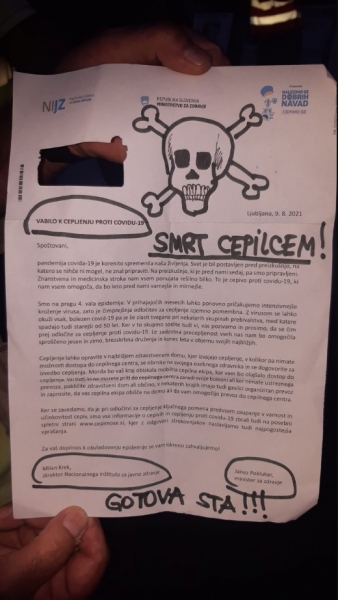 NIJZ
REPUBLIKA SLOVENIJA
MINISTRSTVO ZA ZDRAVJE
NALEZIMO SE
DOBRIH
NAVAD
Ljubljana, 9. 8. 2021
VABILO K CEPLJENJU PROTI COVIDU-19
SMRT CEPILCEM!
Spoštovani,
pandemija covida-19 je korenito spremenila naša življenja. Svet je bil postavljen pred preizkušnjo, na
katero se nihče ni mogel, ne znal pripraviti. Na preizkušnjo, ki je pred nami sedaj, pa smo pripravljeni.
Znanstvena in medicinska stroka nam vsem ponujata rešilno bilko. To je cepivo proti covidu-19, ki
nam vsem omogoča, da bo leto pred nami varnejše in mirnejše.
Smo na pragu 4. vala epidemije. V prihajajočih mesecih lahko ponovno pričakujemo intenzivnejše
kroženje virusa, zato je čimprejšnja odločitev za cepljenje izjemno pomembna. Z virusom se lahko
okuži vsak, bolezen covid-19 pa je še zlasti tvegana pri nekaterih skupinah prebivalstva, med katere
spadajo tudi starejši od 50 let. Ker v to skupino sodite tudi vi, vas pozivamo in prosimo, da se čim
prej odločite za cepljenje proti covidu-19. Le zadostna precepljenost vseh nas nam bo omogočila
sproščeno jesen in zimo, brezskrbna druženja in konec leta v objemu svojih najbližjih.
Cepljenje lahko opravite v najbližjem zdravstvenem domu, kjer izvajajo cepljenje, v kolikor pa nimate
možnosti dostopa do cepilnega centra, se obrnite na svojega osebnega zdravnika in se dogovorite za
izvedbo cepljenja. Morda bo vaš kraj obiskala mobilna cepilna ekipa, kar vam bo olajšalo dostop do
cepljenja.
Ker se zavedamo, da je pri odločitvi za cepljenje ključnega pomena predvsem zaupanje v varnost in
učinkovitost cepiv, smo vse informacije o cepivih in cepljenju proti covidu-19 zbrali tudi na posebni
spletni strani www.cepimose.si, kjer z odgovori strokovnjakov naslavljamo tudi najpogostejša
vprašanja.
Za vaš doprinos k obvladovanju epidemije se vam iskreno zahvaljujemo!
Milan Krek,
direktor Nacionalnega inštituta za javno zdravje
Janez Poklukar,
minister za zdravje
GOTOVA STA!!!